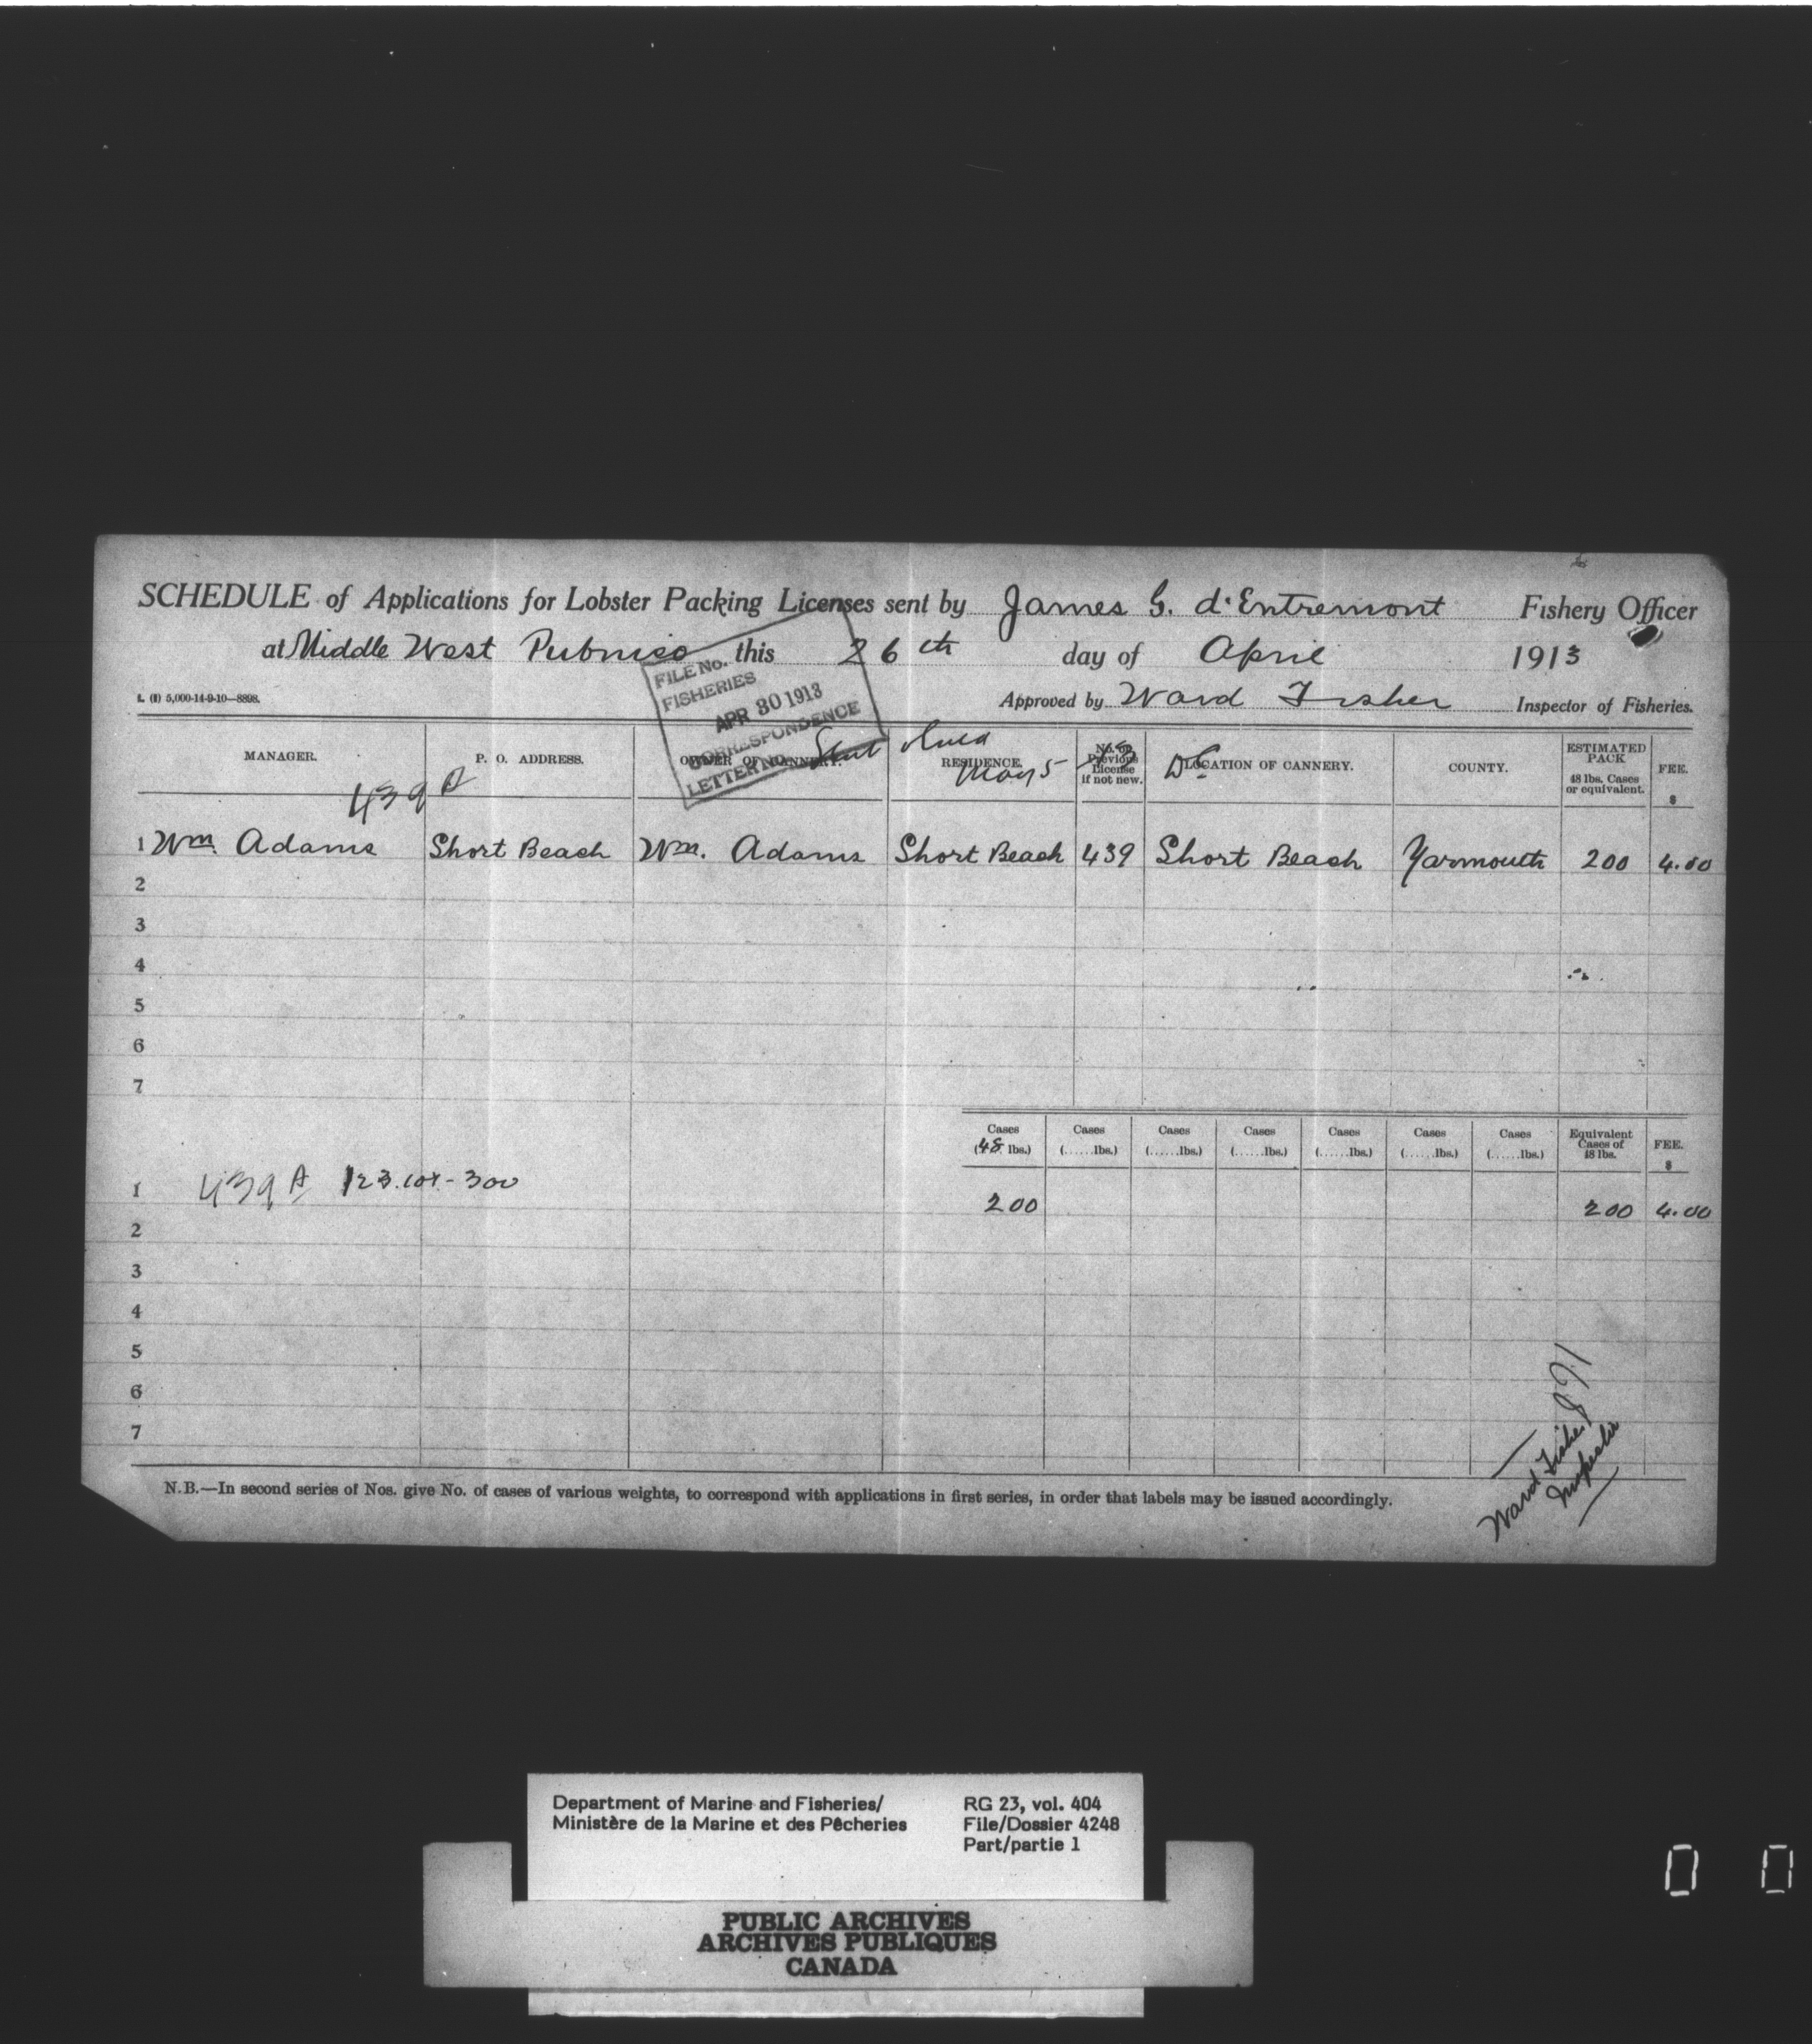 SCHEDULE of Applications for Lobster Packing Licenses sent by James G. d'Entremont Fishery Officer
at Middle West Pubnico this 26th day of April 1913
Approved by Ward Fisher Inspector of Fisheries.
FILE No.
FISHERIES
APR 30 1913
CORRESPONDENCE
LETTER No.
May 5
MANAGER. P. O. ADDRESS. OWNER OF CANNERY. RESIDENCE. No. on Previous License if not new. LOCATION OF CANNERY. COUNTY. ESTIMATED PACK 48 lbs. Cases or equivalent. FEE. $
439 A
1 Wm. Adams Short Beach Wm. Adams Short Beach 439 Short Beach Yarmouth 200 4.00
2
3
4
5
6
7
Cases (48 lbs.) Cases (......lbs.) Cases (......lbs.) Cases (......lbs.) Cases (......lbs.) Cases (......lbs.) Cases (......lbs.) Equivalent Cases of 48 lbs. FEE. $
1 439 A 200 200 4.00
2
3
4
5
6
7
Ward Fisher
Inspector
N.B.—In second series of Nos. give No. of cases of various weights, to correspond with applications in first series, in order that labels may be issued accordingly.
Department of Marine and Fisheries/
Ministère de la Marine et des Pêcheries
RG 23, vol. 404
File/Dossier 4248
Part/partie 1
PUBLIC ARCHIVES
ARCHIVES PUBLIQUES
CANADA
0 0